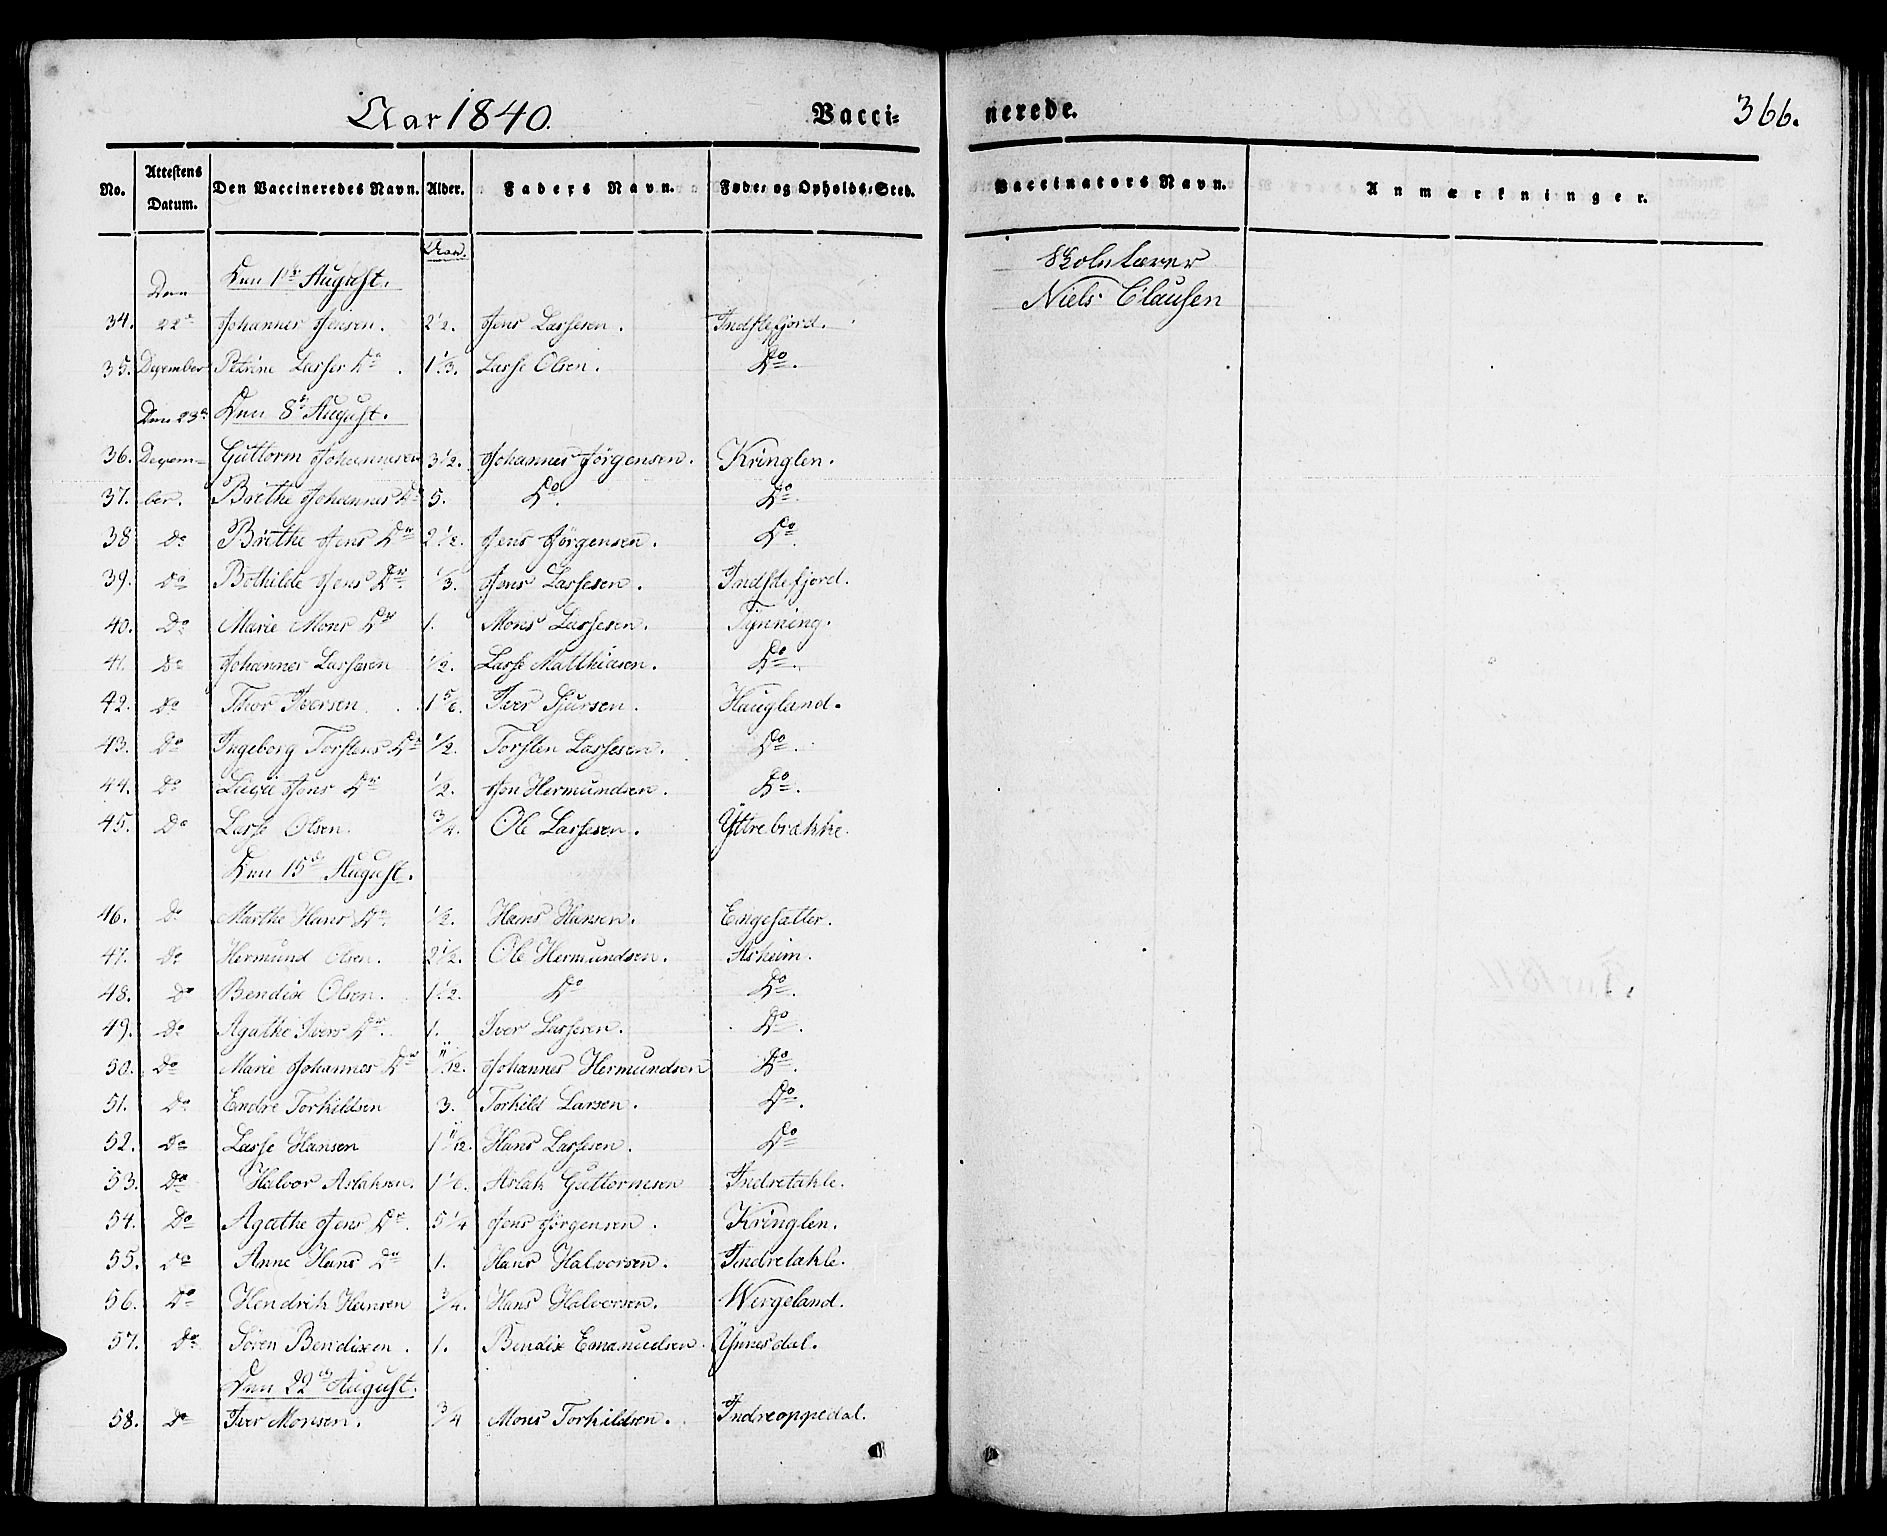 Aar 1840. Vacci-
No. Attestens Datum. Den Vaccineredes Navn. Alder. Faders Navn. Føde- og Opholds-Sted.
Aar.
Den Den 1ste August.
34. 22de Johannes Jensen. 2 1/2. Jens Lassesen. Indstefjord.
35. December Petrine Lasse Dr. 1 1/3. Lasse Olsen. Do.
Den 23de Den 8de August.
36. Decem- Guttorm Johannesen 3 1/2. Johannes Jörgensen. Kringlen.
37. ber. Brithe Johannes Dr 5. Do. Do.
38 Do Brithe Jens Dr 2 1/2. Jens Jörgensen. Do.
39. Do Bothilde Jens Dr. 1/3. Jens Lassesen. Indstefjord.
40. Do Marie Mons Dr 1. Mons Lassesen. Tynning.
41. Do Johannes Lassesen 1/2. Lasse Matthiasen. Do.
42. Do Thor Iversen. 1 5/6. Iver Sjursen. Haugland.
43. Do Ingeborg Torstens Dr 1/2. Torsten Lassesen. Do.
44. Do Jons Dr 1/2. Jon Hermundsen. Do.
45. Do Lasse Olsen. 3/4. Ole Lassesen. Yttrebrække.
Den 15de August.
46. Do Marthe Hans Dr. 1/2. Hans Hansen. Engesætter.
47. Do Hermund Olsen. 2 1/2. Ole Hermundsen. Asheim.
48. Do Bendix Olsen. 1 1/2. Do Do.
49. Do Agathe Ivers Dr. 1. Iver Lassesen. Do.
50. Do Marie Johannes Dr 11/12. Johannes Hermundsen Do.
51. Do Endre Torkildsen 3. Torkild Larsen. Do.
52. Do Lasse Hansen 1 11/12. Hans Lassesen. Do
53. Do Halvor Aslaksen. 1 1/6. Aslak Guttormsen Indretakle.
54. Do Agathe Jens Dr. 5 1/4 Jens Jörgensen. Kringlen.
55. Do Anne Hans Dr 1. Hans Halvorsen. Indretakle.
56. Do Hendrik Hansen 3/4. Hans Halvorsen. Wergeland.
57. Do Sören Bendixen. 1. Bendix Emanuelsen. Ynnesdal.
Den 22de August.
58. Do Iver Monsen. 3/4 Mons Torkildsen. Indreoppedal.
nerede. 366.
Vaccinators Navn. Anmærkninger.
Skolelærer
Niels Clausen